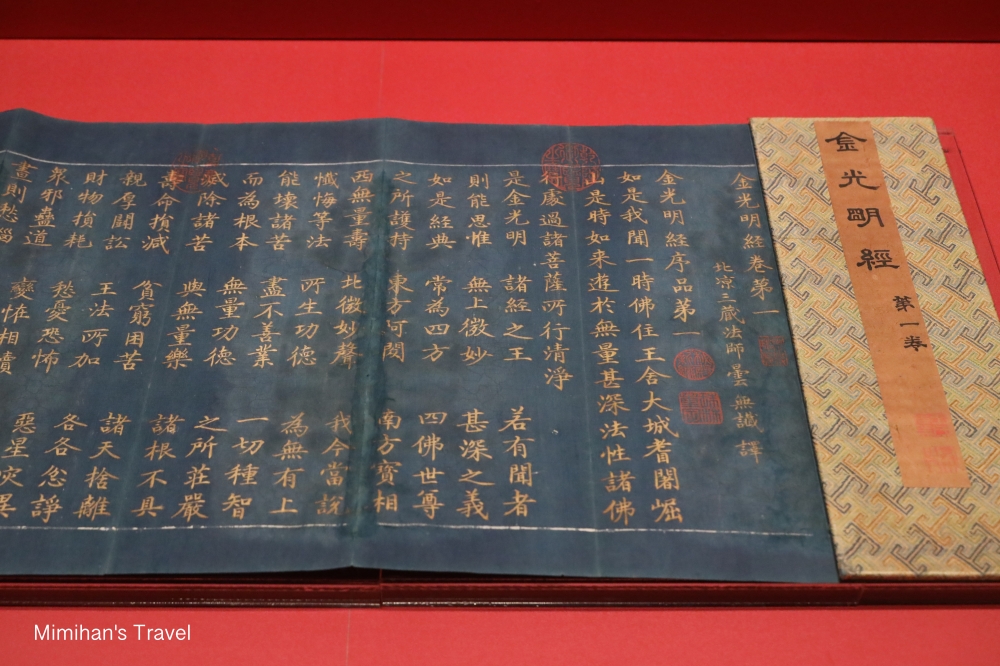 金光明經 第一卷
金光明經卷第一
北涼三藏法師曇無讖譯
金光明經序品第一
如是我聞一時佛住王舍大城耆闍崛
山是時如來遊於無量甚深法性諸佛
行處過諸菩薩所行清淨
是金光明 諸經之王 若有聞者
則能思惟 無上微妙 甚深之義
如是經典 常為四方 四佛世尊
之所護持 東方阿閦 南方寶相
西無量壽 北微妙聲 我今當說
懺悔等法 所生功德 為無有上
能壞諸苦 盡不善業 一切種智
而為根本 無量功德 之所莊嚴
滅除諸苦 與無量樂 諸根不具
壽命損減 貧窮困苦 諸天捨離
親厚鬪訟 王法所加 各各忿諍
財物損耗 愁憂恐怖 惡星災異
眾邪蠱道 變怪相續
晝則愁惱
Mimihan's Travel